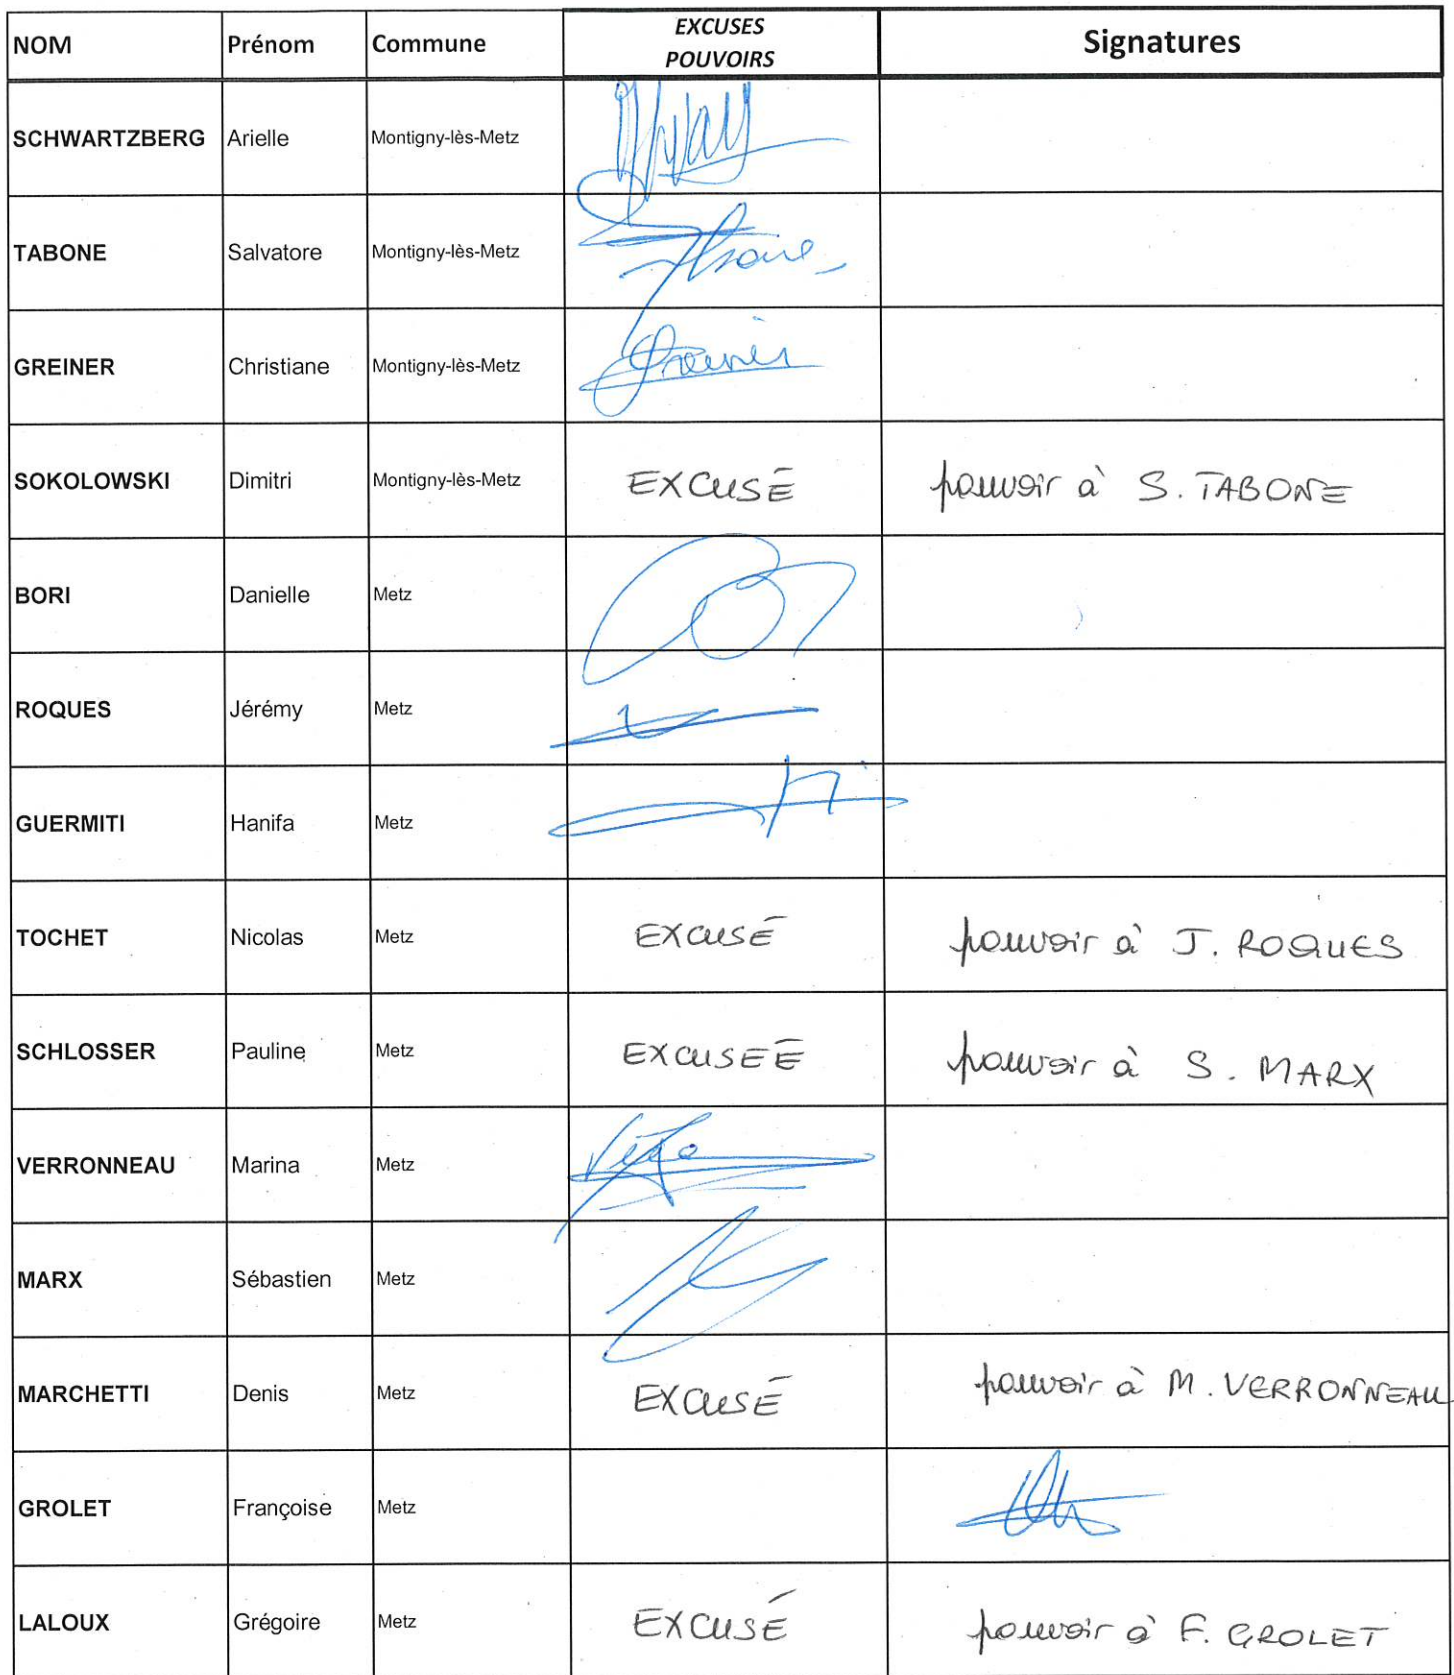 NOM Prénom Commune EXCUSES Signatures
POUVOIRS
SCHWARTZBERG Arielle Montigny-lès-Metz
TABONE Salvatore Montigny-lès-Metz
GREINER Christiane Montigny-lès-Metz
SOKOLOWSKI Dimitri Montigny-lès-Metz EXCUSÉ pouvoir à S. TABONE
BORI Danielle Metz
ROQUES Jérémy Metz
GUERMITI Hanifa Metz
TOCHET Nicolas Metz EXCUSÉ pouvoir à J. ROQUES
SCHLOSSER Pauline Metz EXCUSEÉ pouvoir à S. MARX
VERRONNEAU Marina Metz
MARX Sébastien Metz
MARCHETTI Denis Metz EXCUSÉ pouvoir à M. VERRONNEAU
GROLET Françoise Metz
LALOUX Grégoire Metz EXCUSÉ pouvoir à F. GROLET